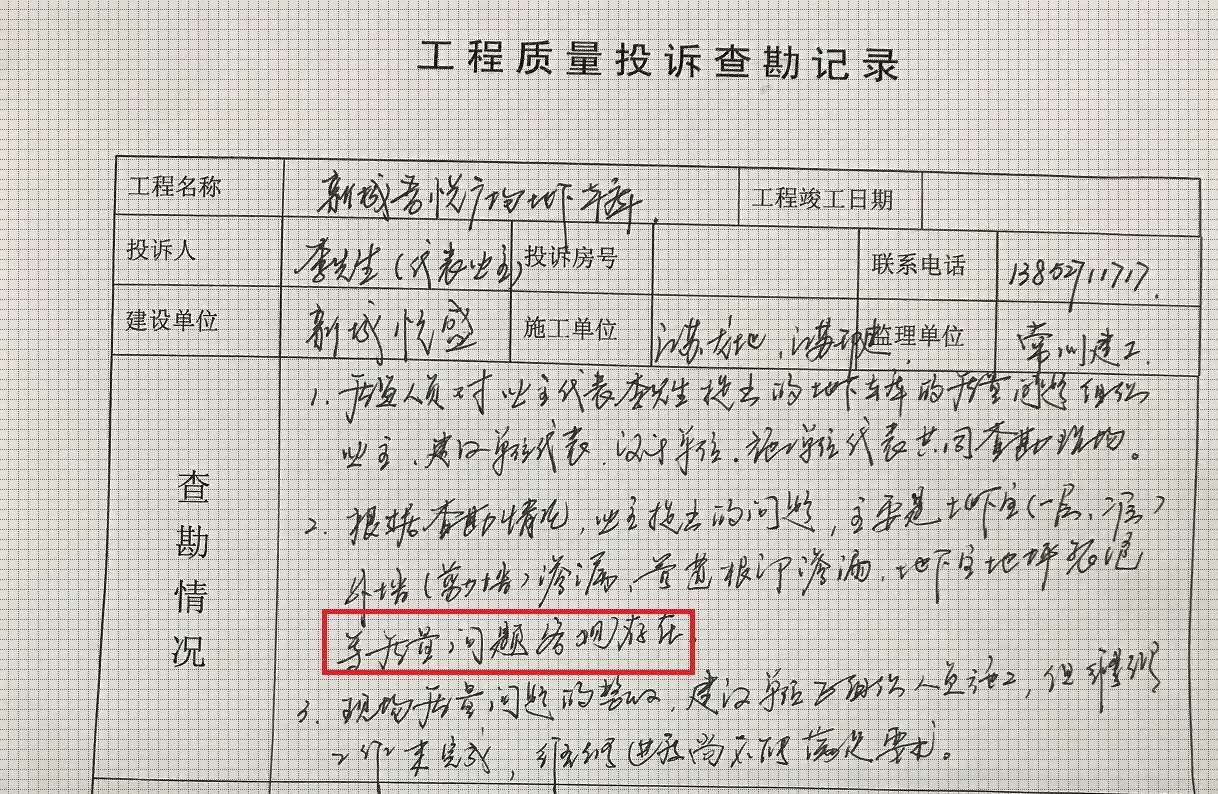 工程质量投诉查勘记录
工程名称 新城吾悦广场地下车库. 工程竣工日期
投诉人 李先生(代表业主) 投诉房号 联系电话 13852711717.
建设单位 新城悦盛 施工单位 江苏龙地,江苏邗建. 监理单位 常州建工.
查勘情况
1. 质监人员对业主代表李先生提出的地下车库的质量问题组织
业主、建设单位代表、设计单位、施工单位代表共同查勘现场。
2. 根据查勘情况,业主提出的问题,主要是地下室(一层、二层)
外墙(剪力墙)渗漏、管道根部渗漏、地下室地坪
等质量问题客观存在.
3. 现场质量问题的整改,建设单位正组织人员施工,但维修
工作未完成,维修进度尚不能满足要求。